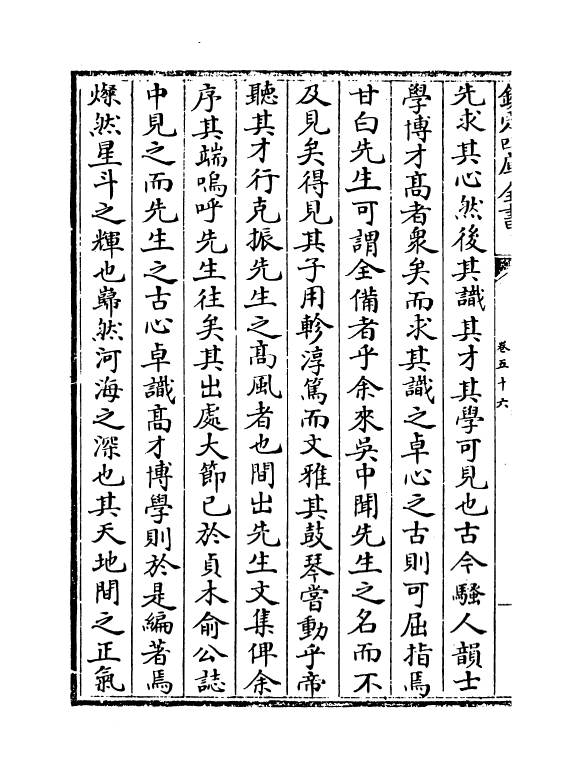 欽定四庫全書
卷五十六
先求其心然後其識其才其學可見也古今騷人韻士
學博才髙者衆矣而求其識之卓心之古則可屈指焉
甘白先生可謂全備者乎余來吳中聞先生之名而不
及見矣得見其子用軫淳篤而文雅其鼓琴嘗動乎帝
聽其才行克振先生之髙風者也間出先生文集俾余
序其端嗚呼先生往矣其出處大節已於貞木俞公誌
中見之而先生之古心卓識髙才博學則於是編著焉
燦然星斗之輝也歸然河海之深也其天地間之正氣